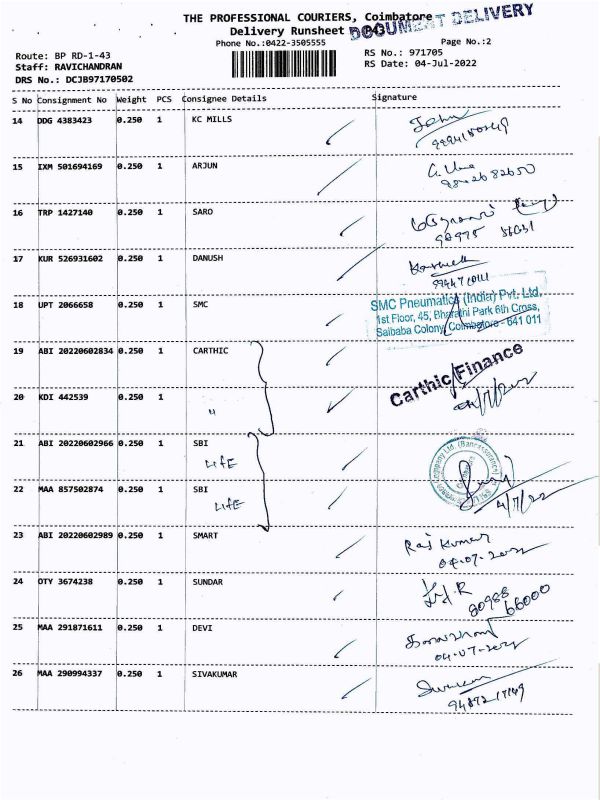 THE PROFESSIONAL COURIERS, Coimbatore
DOCUMENT DELIVERY
Delivery Runsheet
Phone No.:0422-3505555
Page No.:2
Route: BP RD-1-43
RS No.: 971705
Staff: RAVICHANDRAN
RS Date: 04-Jul-2022
DRS No.: DCJB97170502
S No Consignment No Weight PCS Consignee Details Signature
14 DDG 4383423 0.250 1 KC MILLS John
15 IXM 501694169 0.250 1 ARJUN
16 TRP 1427140 0.250 1 SARO
17 KUR 526931602 0.250 1 DANUSH
18 UPT 2066658 0.250 1 SMC
SMC Pneumatics (India) Pvt. Ltd.
1st Floor, 45, Bharathi Park 6th Cross,
Saibaba Colony, Coimbatore - 641 011
19 ABI 20220602834 0.250 1 CARTHIC
Carthic Finance
20 KDI 442539 0.250 1
"
21 ABI 20220602966 0.250 1 SBI
LIFE
22 MAA 857502874 0.250 1 SBI
LIFE
4/7/22
23 ABI 20220602989 0.250 1 SMART Raj Kumar
04-07-2022
24 OTY 3674238 0.250 1 SUNDAR
25 MAA 291871611 0.250 1 DEVI
04-07-2022
26 MAA 290994337 0.250 1 SIVAKUMAR